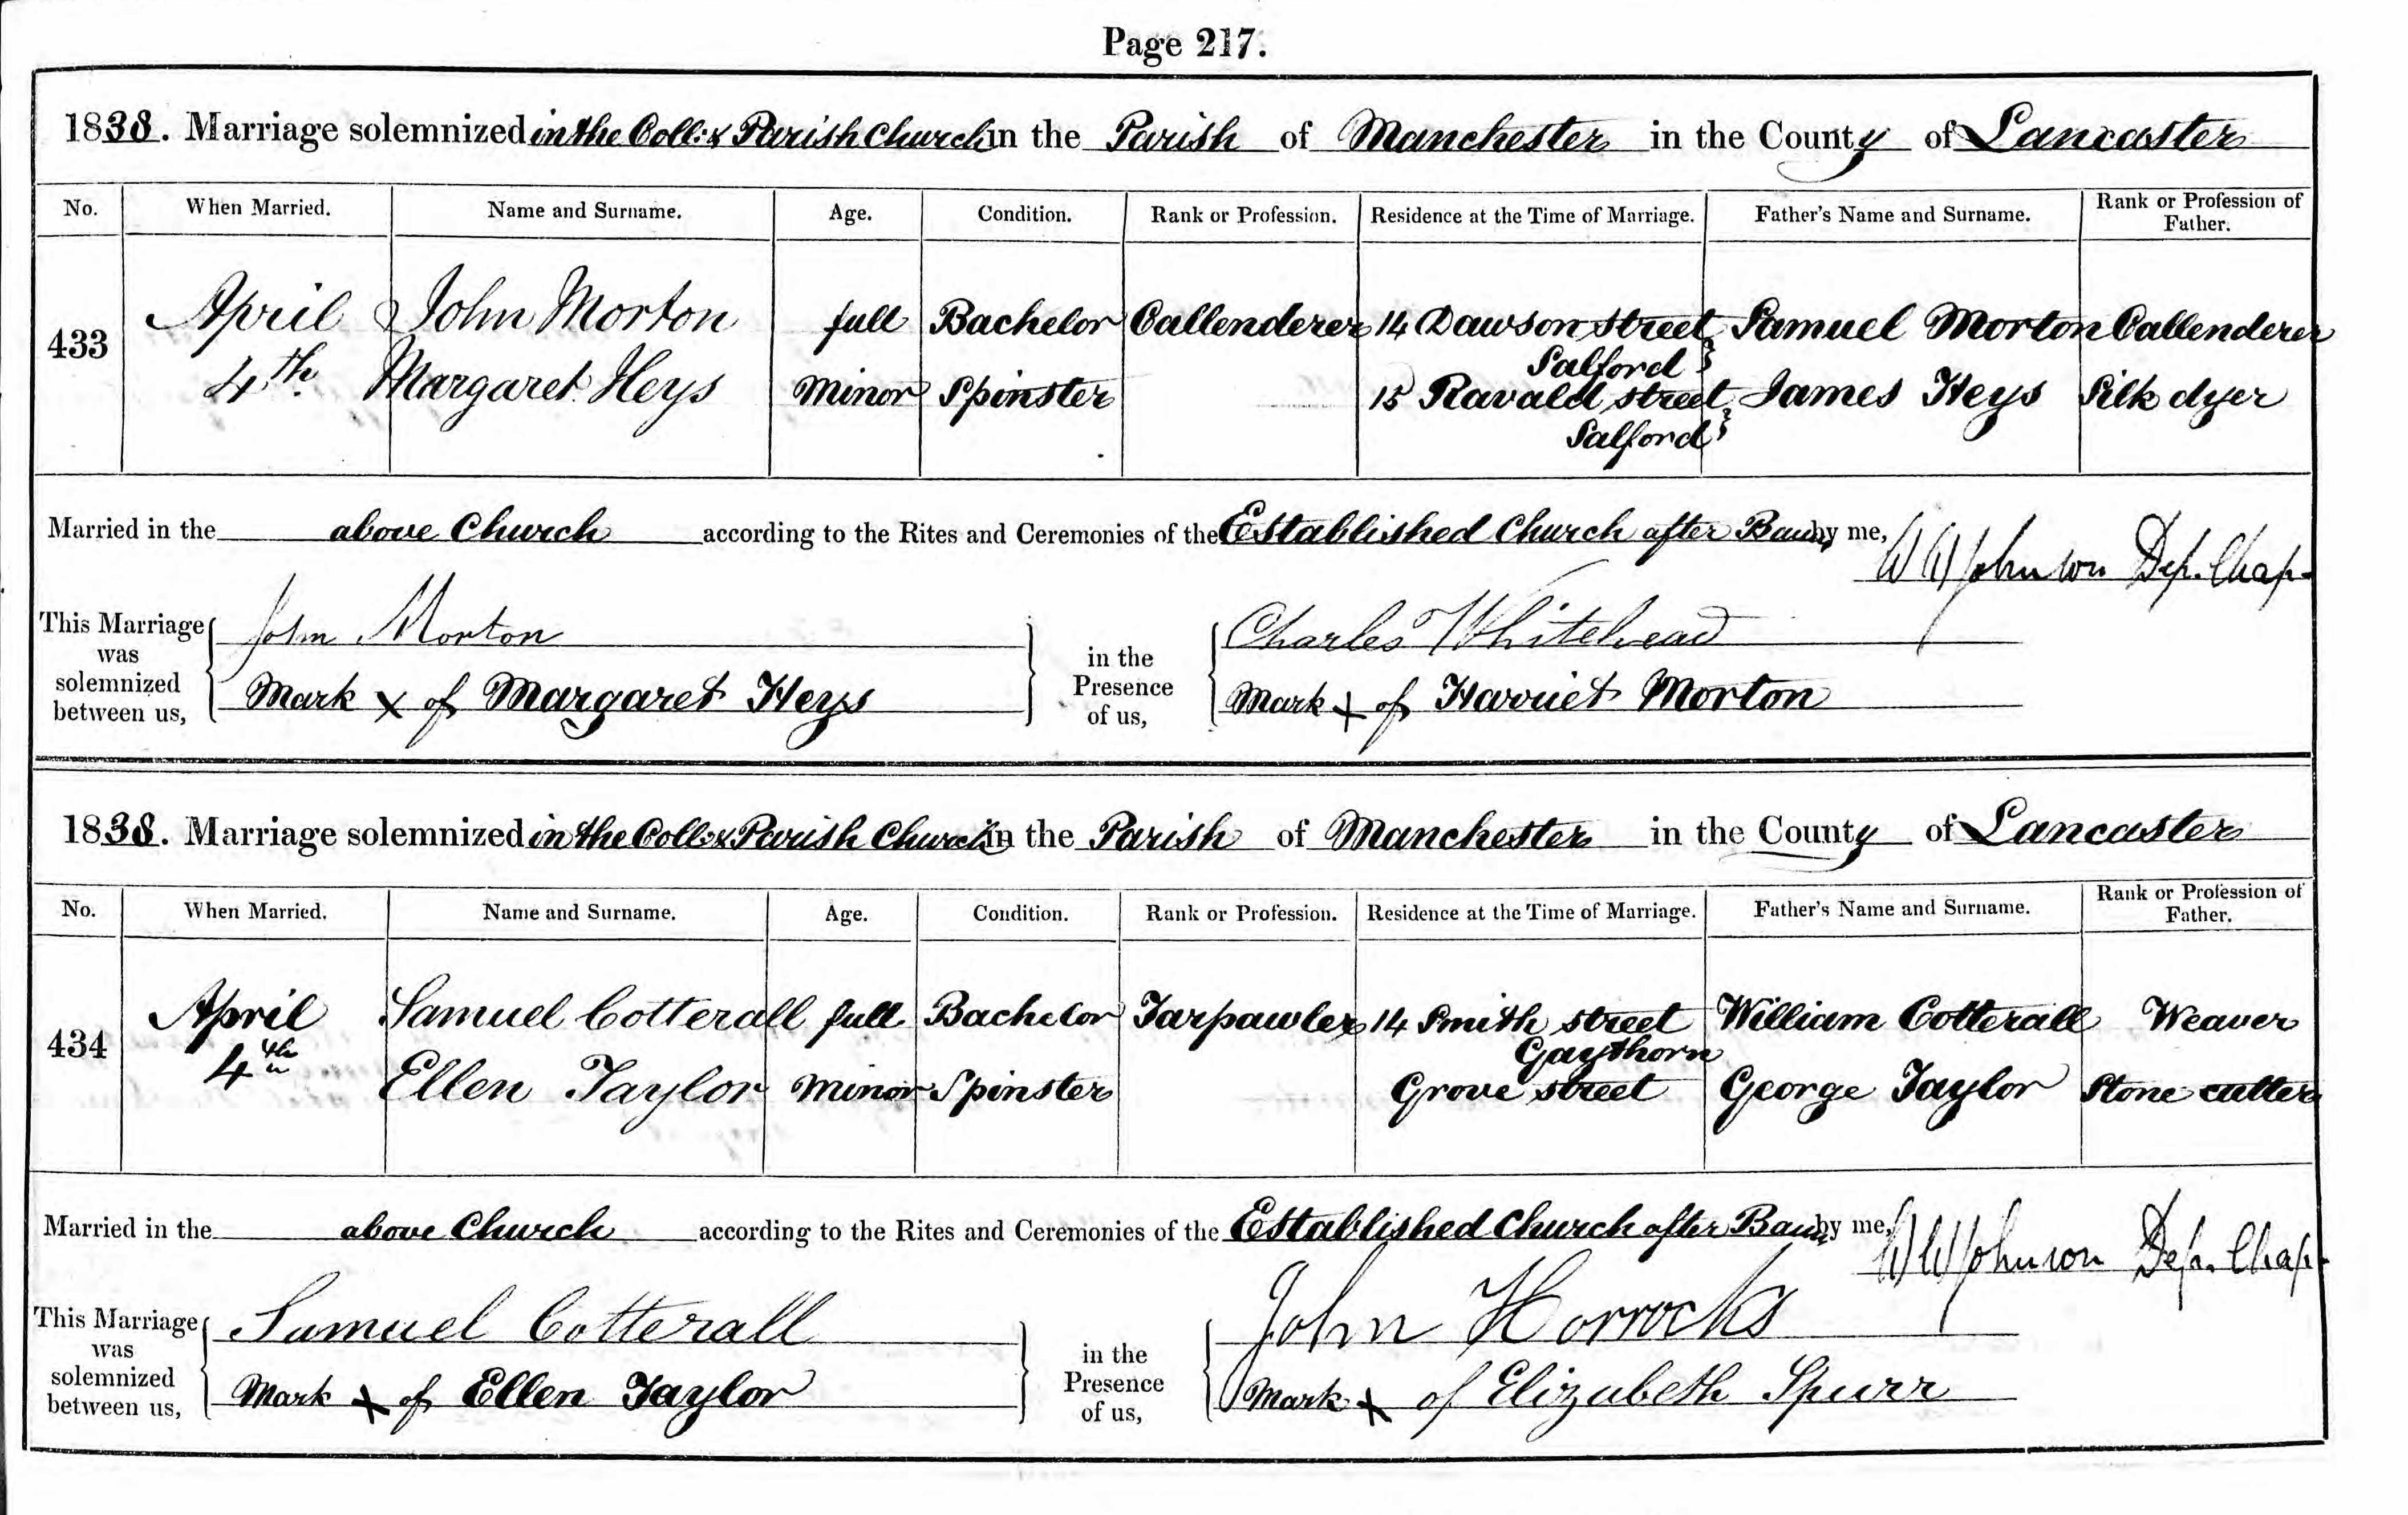 Page 217.
1838. Marriage solemnized in the Coll: & Parish Church in the Parish of Manchester in the County of Lancaster
No. When Married. Name and Surname. Age. Condition. Rank or Profession. Residence at the Time of Marriage. Father's Name and Surname. Rank or Profession of Father.
433 April 4th John Morton full Bachelor Callenderer 14 Dawson street Salford Samuel Morton Callenderer
Margaret Heys Minor Spinster 15 Ravald street Salford James Heys Silk dyer
Married in the above Church according to the Rites and Ceremonies of the Established Church after Banns by me, W W Johnson Dep. Chap.
This Marriage was solemnized between us, John Morton
Mark X of Margaret Heys
in the Presence of us, Charles Whitehead
Mark X of Harriet Morton
1838. Marriage solemnized in the Coll: & Parish Church in the Parish of Manchester in the County of Lancaster
No. When Married. Name and Surname. Age. Condition. Rank or Profession. Residence at the Time of Marriage. Father's Name and Surname. Rank or Profession of Father.
434 April 4th Samuel Cotterall full Bachelor Tarpawler 14 Smith street Gaythorn William Cotterall Weaver
Ellen Taylor Minor Spinster Grove street George Taylor Stone cutter
Married in the above Church according to the Rites and Ceremonies of the Established Church after Banns by me, W W Johnson Dep. Chap.
This Marriage was solemnized between us, Samuel Cotterall
Mark X of Ellen Taylor
in the Presence of us, John Horrocks
Mark X of Elizabeth Spurr